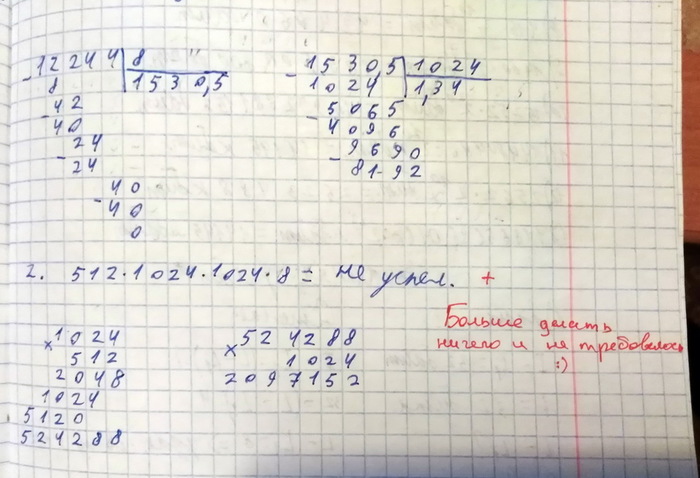 -12244 | 8
8 | 1530,5
-42
40
-24
24
-40
40
0
-1530,5 | 1024
1024 | 1,34
-5065
4096
-9690
8192
2. 512·1024·1024·8 = не успел. +
Больше делать
ничего и не требовалось
:)
×1024
512
2048
1024
5120
524288
×524288
1024
2097152